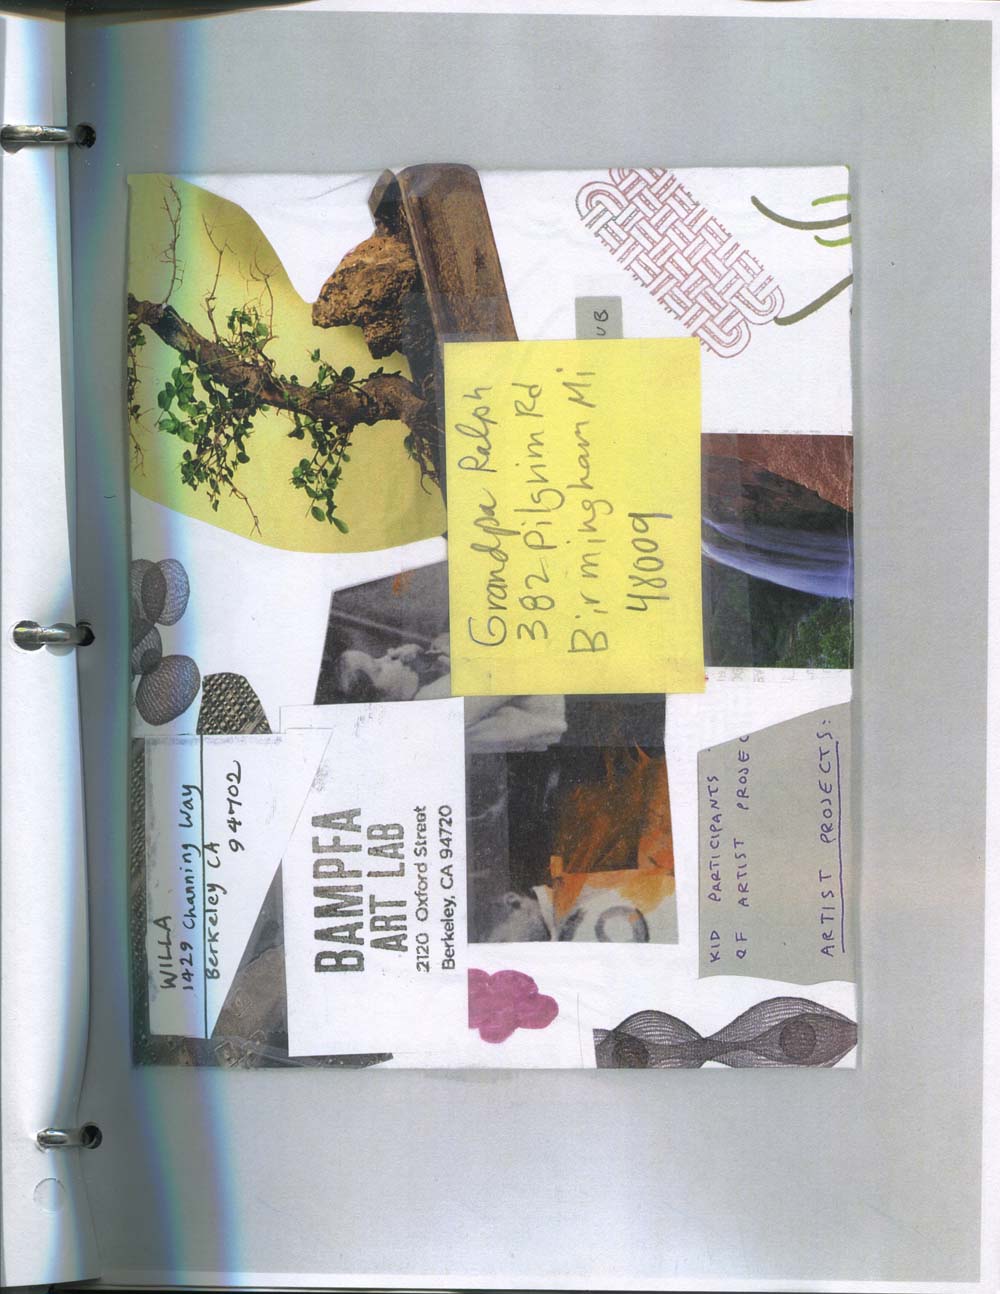 WILLA
1429 Channing Way
Berkeley CA
94702
BAMPFA
ART LAB
2120 Oxford Street
Berkeley, CA 94720
Grandpa Ralph
382 Pilgrim Rd
Birmingham Mi
48009
UB
KID PARTICIPANTS
OF ARTIST PROJEC
ARTIST PROJECTS: